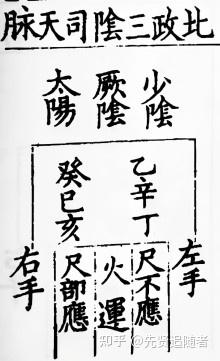 北政三陰司天脉
少陰
厥陰
太陽
乙辛丁
癸巳亥
左手
尺不應
火運
尺即應
右手
知乎 @先贤追随者